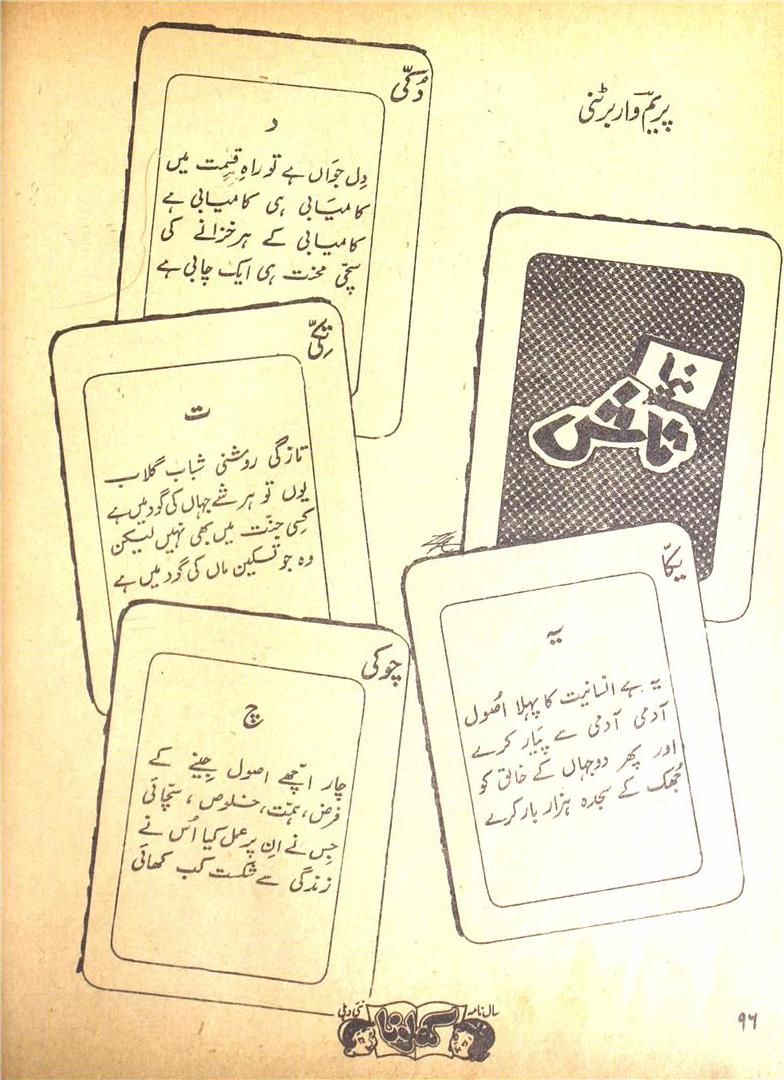 پریم واربرٹنی
نیا
تاش
یکّا
یہ
یہ ہے انسانیت کا پہلا اُصول
آدمی آدمی سے پیَار کرے
اور پھر دوجہاں کے خالق کو
جُھک کے سجدہ ہزار بار کرے
دُکّی
د
دِل جوَاں ہے تو راہِ قسِمت میں
کامیَابی ہی کامیابی ہے
کامیابی کے ہر خزانے کی
سچّی محنت ہی ایک چابی ہے
تِکّی
ت
تازگی روشنی شباب گلاب
یوں تو ہر شئے جہاں کی گود میں ہے
کسِی جنّت میں بھی نہیں لیکن
وہ جو تسکین ماں کی گود میں ہے
چوکی
چ
چار اچّھے اصول جینے کے
فرض، ہمّت، خلوص، سچّائی
جِس نے اِن پر عمل کیا اُس نے
زندگی سے شکست کب کھائی
سال نامہ
کھلونا
نئی دہلی
۹۶